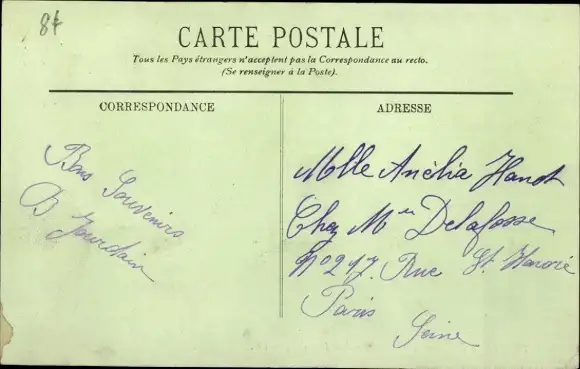 84
CARTE POSTALE
Tous les Pays étrangers n'acceptent pas la Correspondance au recto.
(Se renseigner à la Poste).
CORRESPONDANCE
Bons Souvenirs
B Jourdain
ADRESSE
Mlle Amélia Hanot
Chez Mme Delafosse
No 217. Rue St. Honoré
Paris
Seine